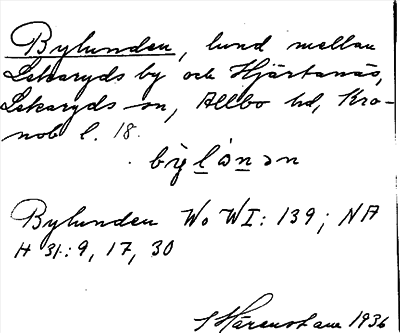 Bylunden, lund mellan
Lekaryds by och Hjärtanäs,
Lekaryds sn, Allbo hd, Kro-
nob l. 18.
Bylunden Wo WI: 139; NA
H 31: 9, 17, 30
1936